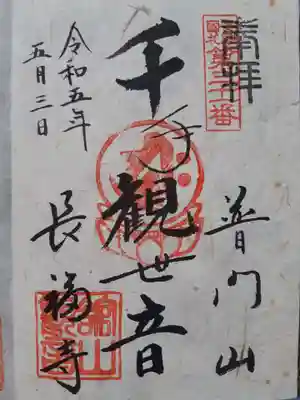 奉拝
第二十番
普門山
千手観世音
長福寺
令和五年
五月三日